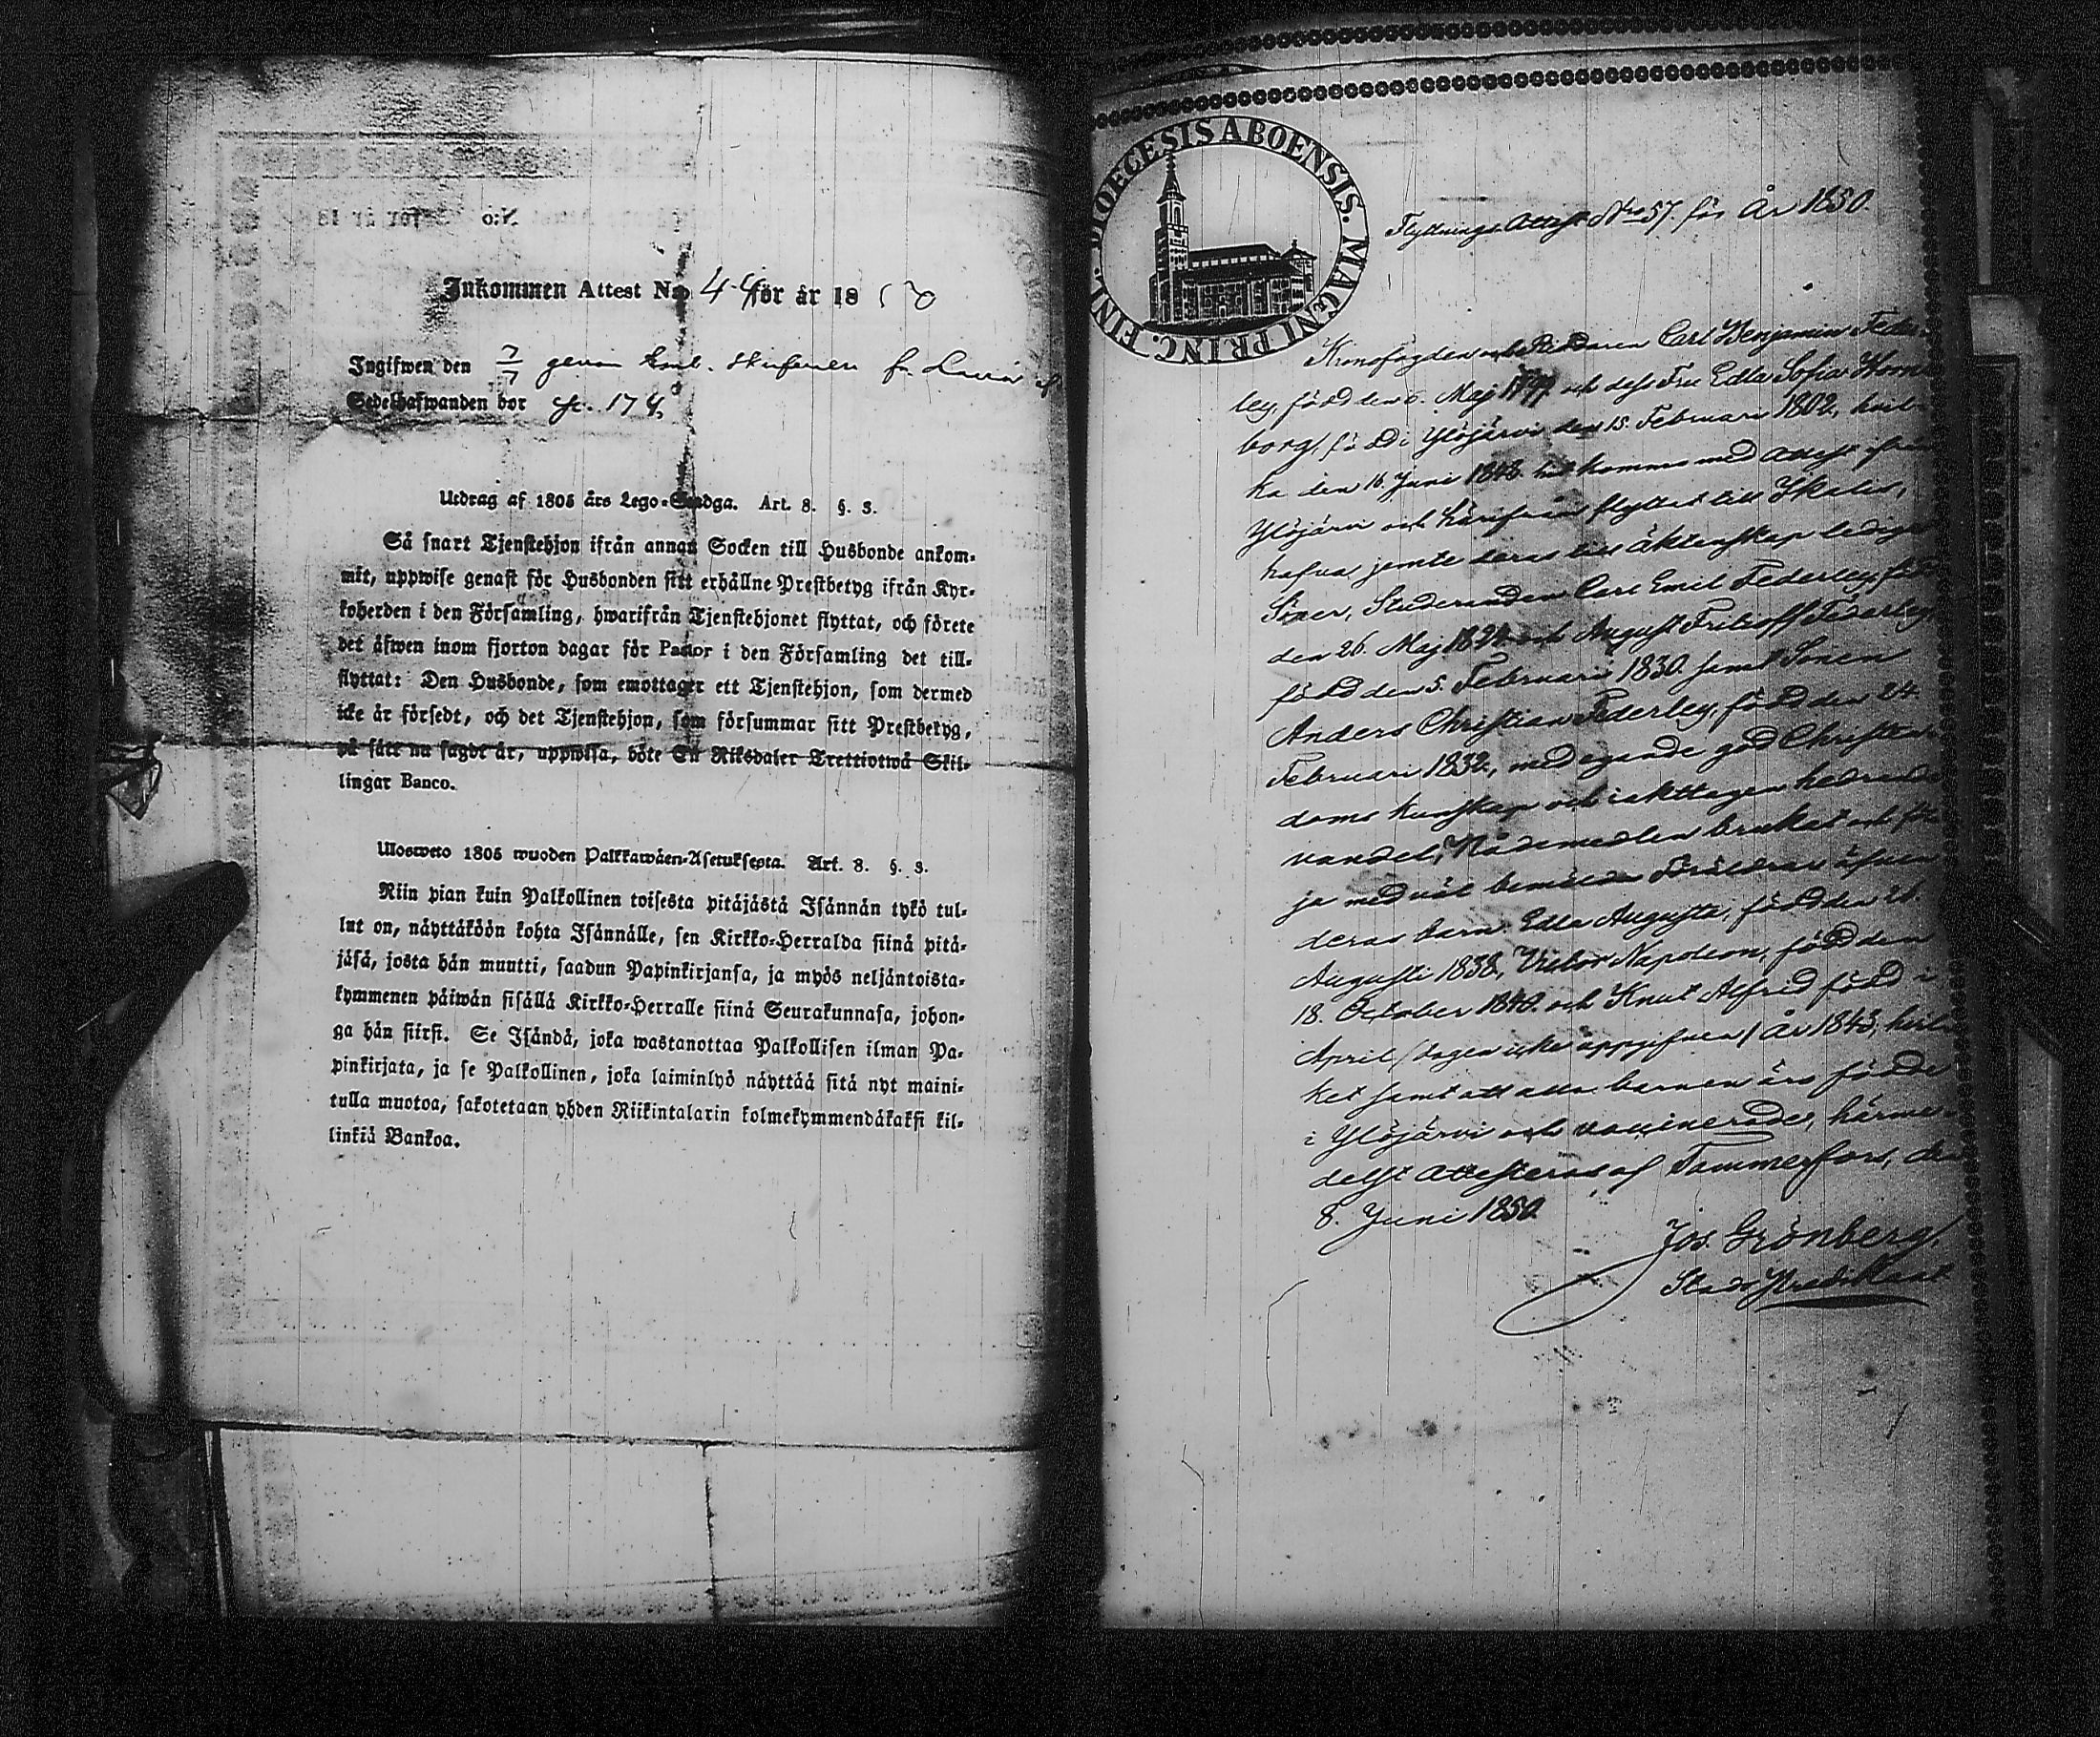 Inkommen Attest No 44 för år 1850
Ingifwen den 7/7 genom
Sedelhafwanden bor 174
Utdrag af 1805 års Lego-Stadga. Art. 8. §. 3.
Så snart Tjenstehjon ifrån annan Socken till Husbonde ankom-
mit, uppwise genast för Husbonden sitt erhållne Prestbetyg ifrån Kyr-
koherden i den Församling, hwarifrån Tjenstehjonet flyttat, och förete
det äfwen inom fjorton dagar för Pastor i den Församling det till-
flyttat: Den Husbonde, som emottager ett Tjenstehjon, som dermed
icke är försedt, och det Tjenstehjon, som försummar sitt Prestbetyg,
på sätt nu sagdt är, uppwisa, böte En Riksdaler Trettiotwå Skil-
lingar Banco.
Uloswето 1805 wuoden Palkkawäen-Asetuksesta. Art. 8. §. 3.
Niin pian kuin Palkollinen toisesta pitäjästä Isännän tykö tul-
lut on, näyttäköön kohta Isännälle, sen Kirkko-Herralda siinä pitä-
jäsä, josta hän muutti, saadun Papinkirjansa, ja myös neljäntoista-
kymmenen päiwän sisällä Kirkko-Herralle siinä Seurakunnasa, johon-
ga hän siirsi. Se Isändä, joka wastanottaa Palkollisen ilman Pa-
pinkirjata, ja se Palkollinen, joka laiminlyö näyttää sitä nyt maini-
tulla muotoa, sakotetaan yhden Riikintalarin kolmekymmendäkaksi kil-
linkiä Bankoa.
DIOECESIS ABOENSIS. MAGNI PRINC. FINL.
Flyttnings Attest Nro 57. för År 1850.
Kronofogden och Riddaren Carl Benjamin Feder-
ley, född den 6. Maj 1799 och dess Fru Edla Sofia Horn-
borg, född i Ylöjärvi den 15. Februari 1802, hvil-
ka den 16. Juni 1848 hit kommo med attest ifrån
Ylöjärvi och härifrån flyttat till Ikalis,
hafva jemte deras till äktenskap lediga
Söner, Studeranden Carl Emil Federley, född
den 26. Maj 1828 och August Fritioff Federley,
född den 5. Februari 1830. samt Sonen
Anders Christian Federley, född den 24.
Februari 1832, med egande god Christen-
doms kunskap och iakttagen hedrande
vandel, Nådemedlen brukat och föl-
ja med väl bemälda Föräldrar äfven
deras barn Edla Augusta, född den 26.
Augusti 1838, Victor Napoleon, född den
18. October 1840. och Knut Alfrid född i
April (dagen icke uppgifven) år 1843, hvil-
ket samt att alla barnen äro födde
i Ylöjärvi och vaccinerade, härme-
delst attesteras af Tammerfors, den
8. Juni 1850.
Jos. Grönberg,
Stads Predikant